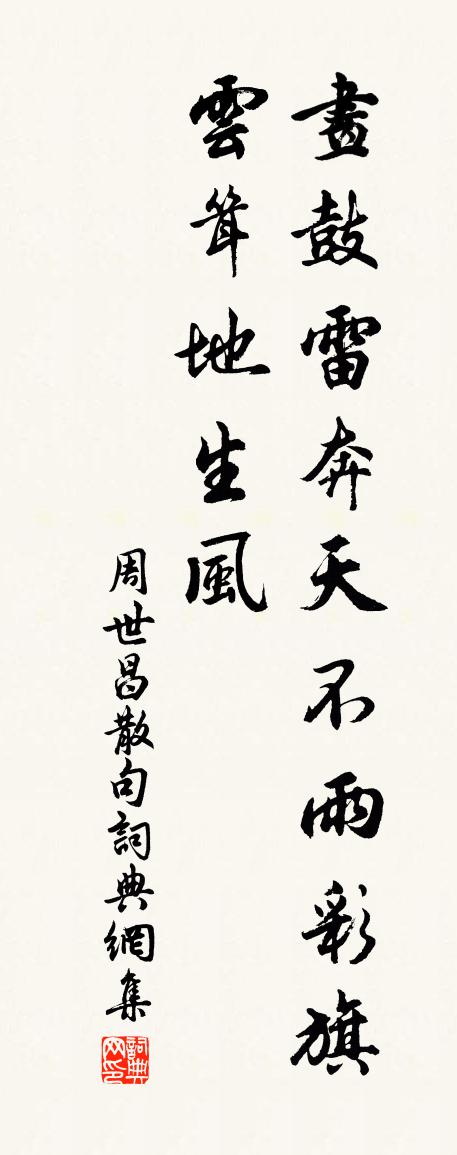 畫鼓雷奔天不雨彩旗
雲耸地生風
周世昌散句詞典網集
詞典
网印